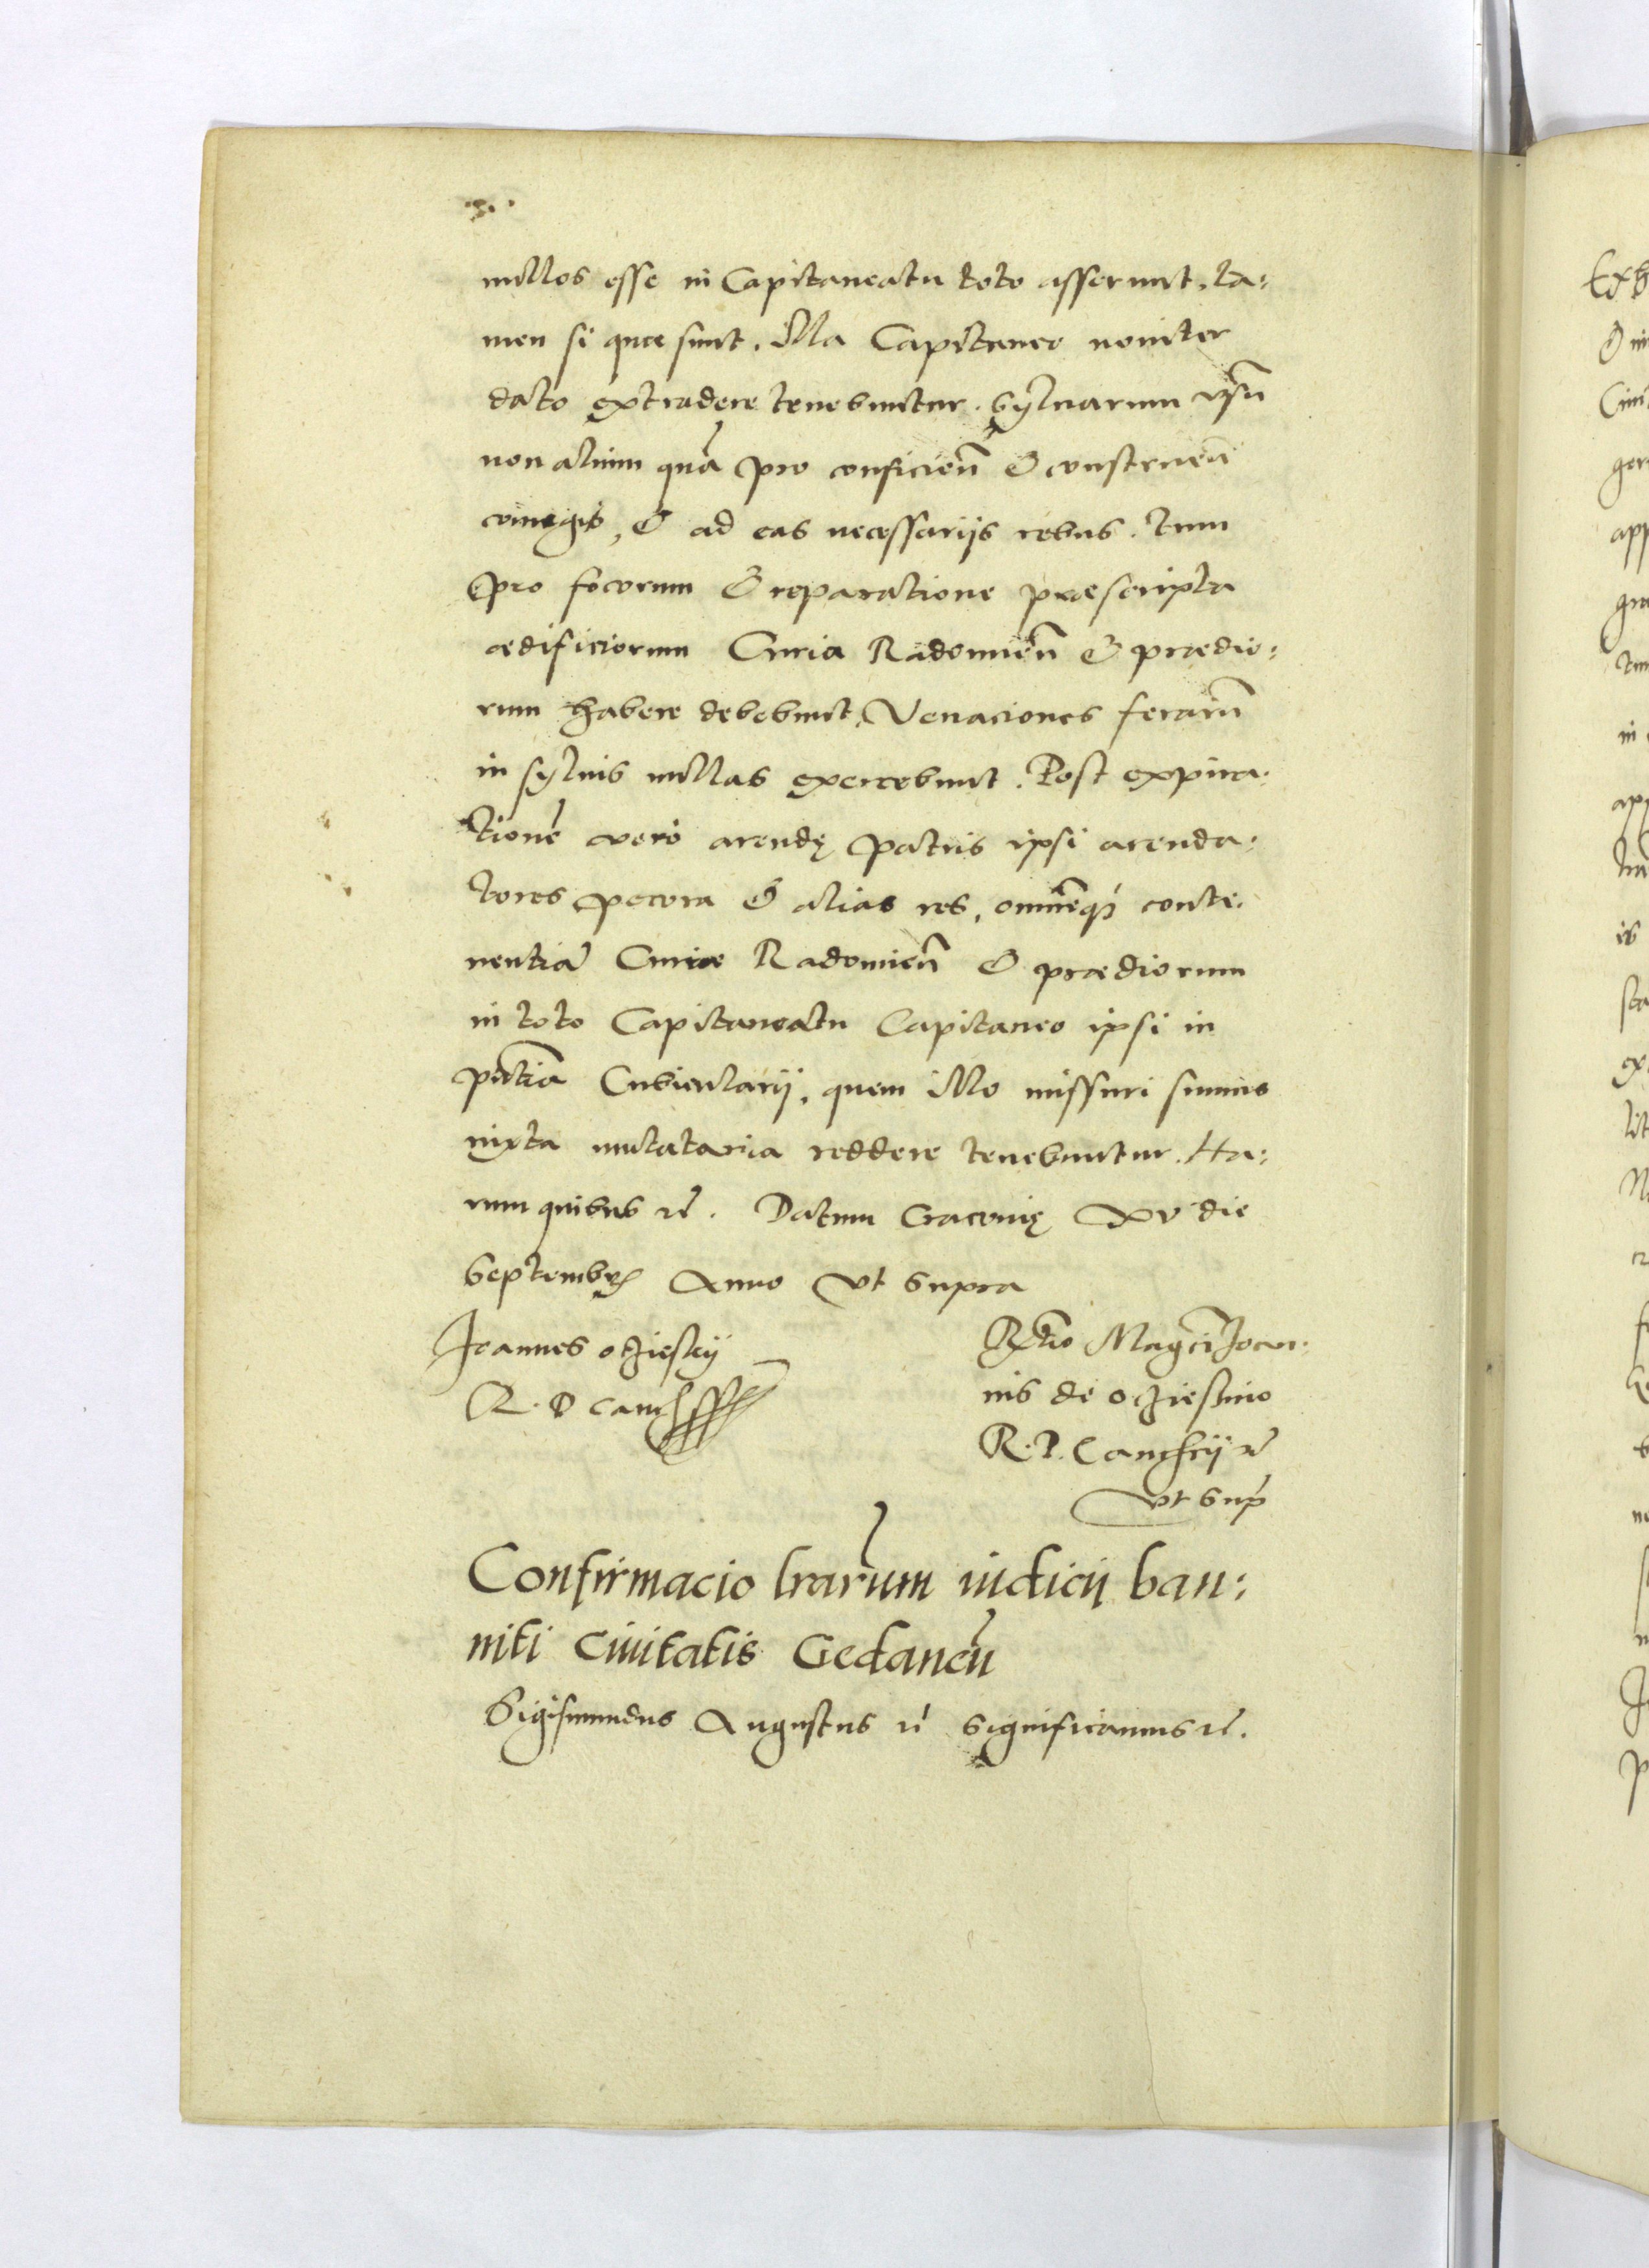 nullos esse in Capitaneatu toto asserunt, ta:
men si quæ sunt. Illa Capitaneo noviter
dato extradere tenebuntur. Sylvarum usū
non alium quā pro conficieñ & construeñ
& ad eas necessarijs rebus. tum
pro focorum & reparatione præscripta
ædificiorum Curia Radomieñ & prædio:
rum habere debebunt. Venaciones ferarū
in sylvis nullas exercebunt. Post expira:
tionē vero arendę patris ipsi arenda:
tores pecora & alias res, omnēq́ȝ conti:
nentiā Curiæ Radomieñ & prædiorum
in toto Capitaneatu Capitaneo ipsi in
pñtiā Cubicularij, quem illo missuri sumus
iuxta inuentaria reddere tenebuntur. Ha:
rum quibus rē. Datum Cracovię XV die
Septembrȝ Anno Vt Supra
Joannes Oczieskij
R. P. Canc
Rltio Magcī Joan:
nis de Oczieszino
R. P. Cancrij rē
vt Supȓ
Confirmacio lrarum iudicij ban:
niti Civitatis Gedaneñ
Sigismundus Augustus rē Significamus rē.